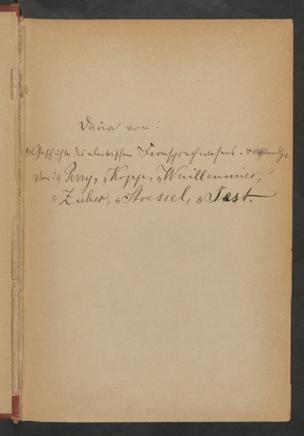 Darin von:
1) Geschichte des elektrischen Fernsprechwesens.
von: 2) Perry, 3) Kopp, 4) Wuilleumier,
5) Zuber, 6) Stoessel, 7) Jest.